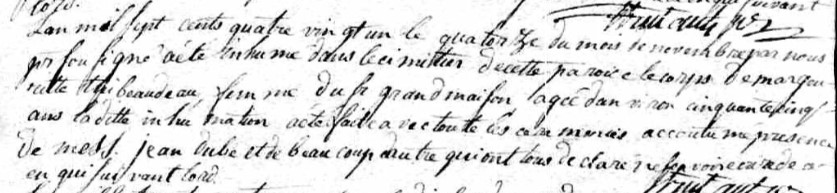 Lan mil sept cents quatre vingt un le quatorze du mois de novembre par nous
ptr sousigné a été inhume dans le cimittier de cette paroice le corps de margue
ritte thibeaudeau femme du sr grandmaison agée danviron cinquante cinq
ans la ditte inhumation a été faite avec toute les cerimonies accoutumé presence
de mess. jean dube et de beaucoup dautre qui ont tous declare ne scavoir ecrire de a
en qui suivant lord.